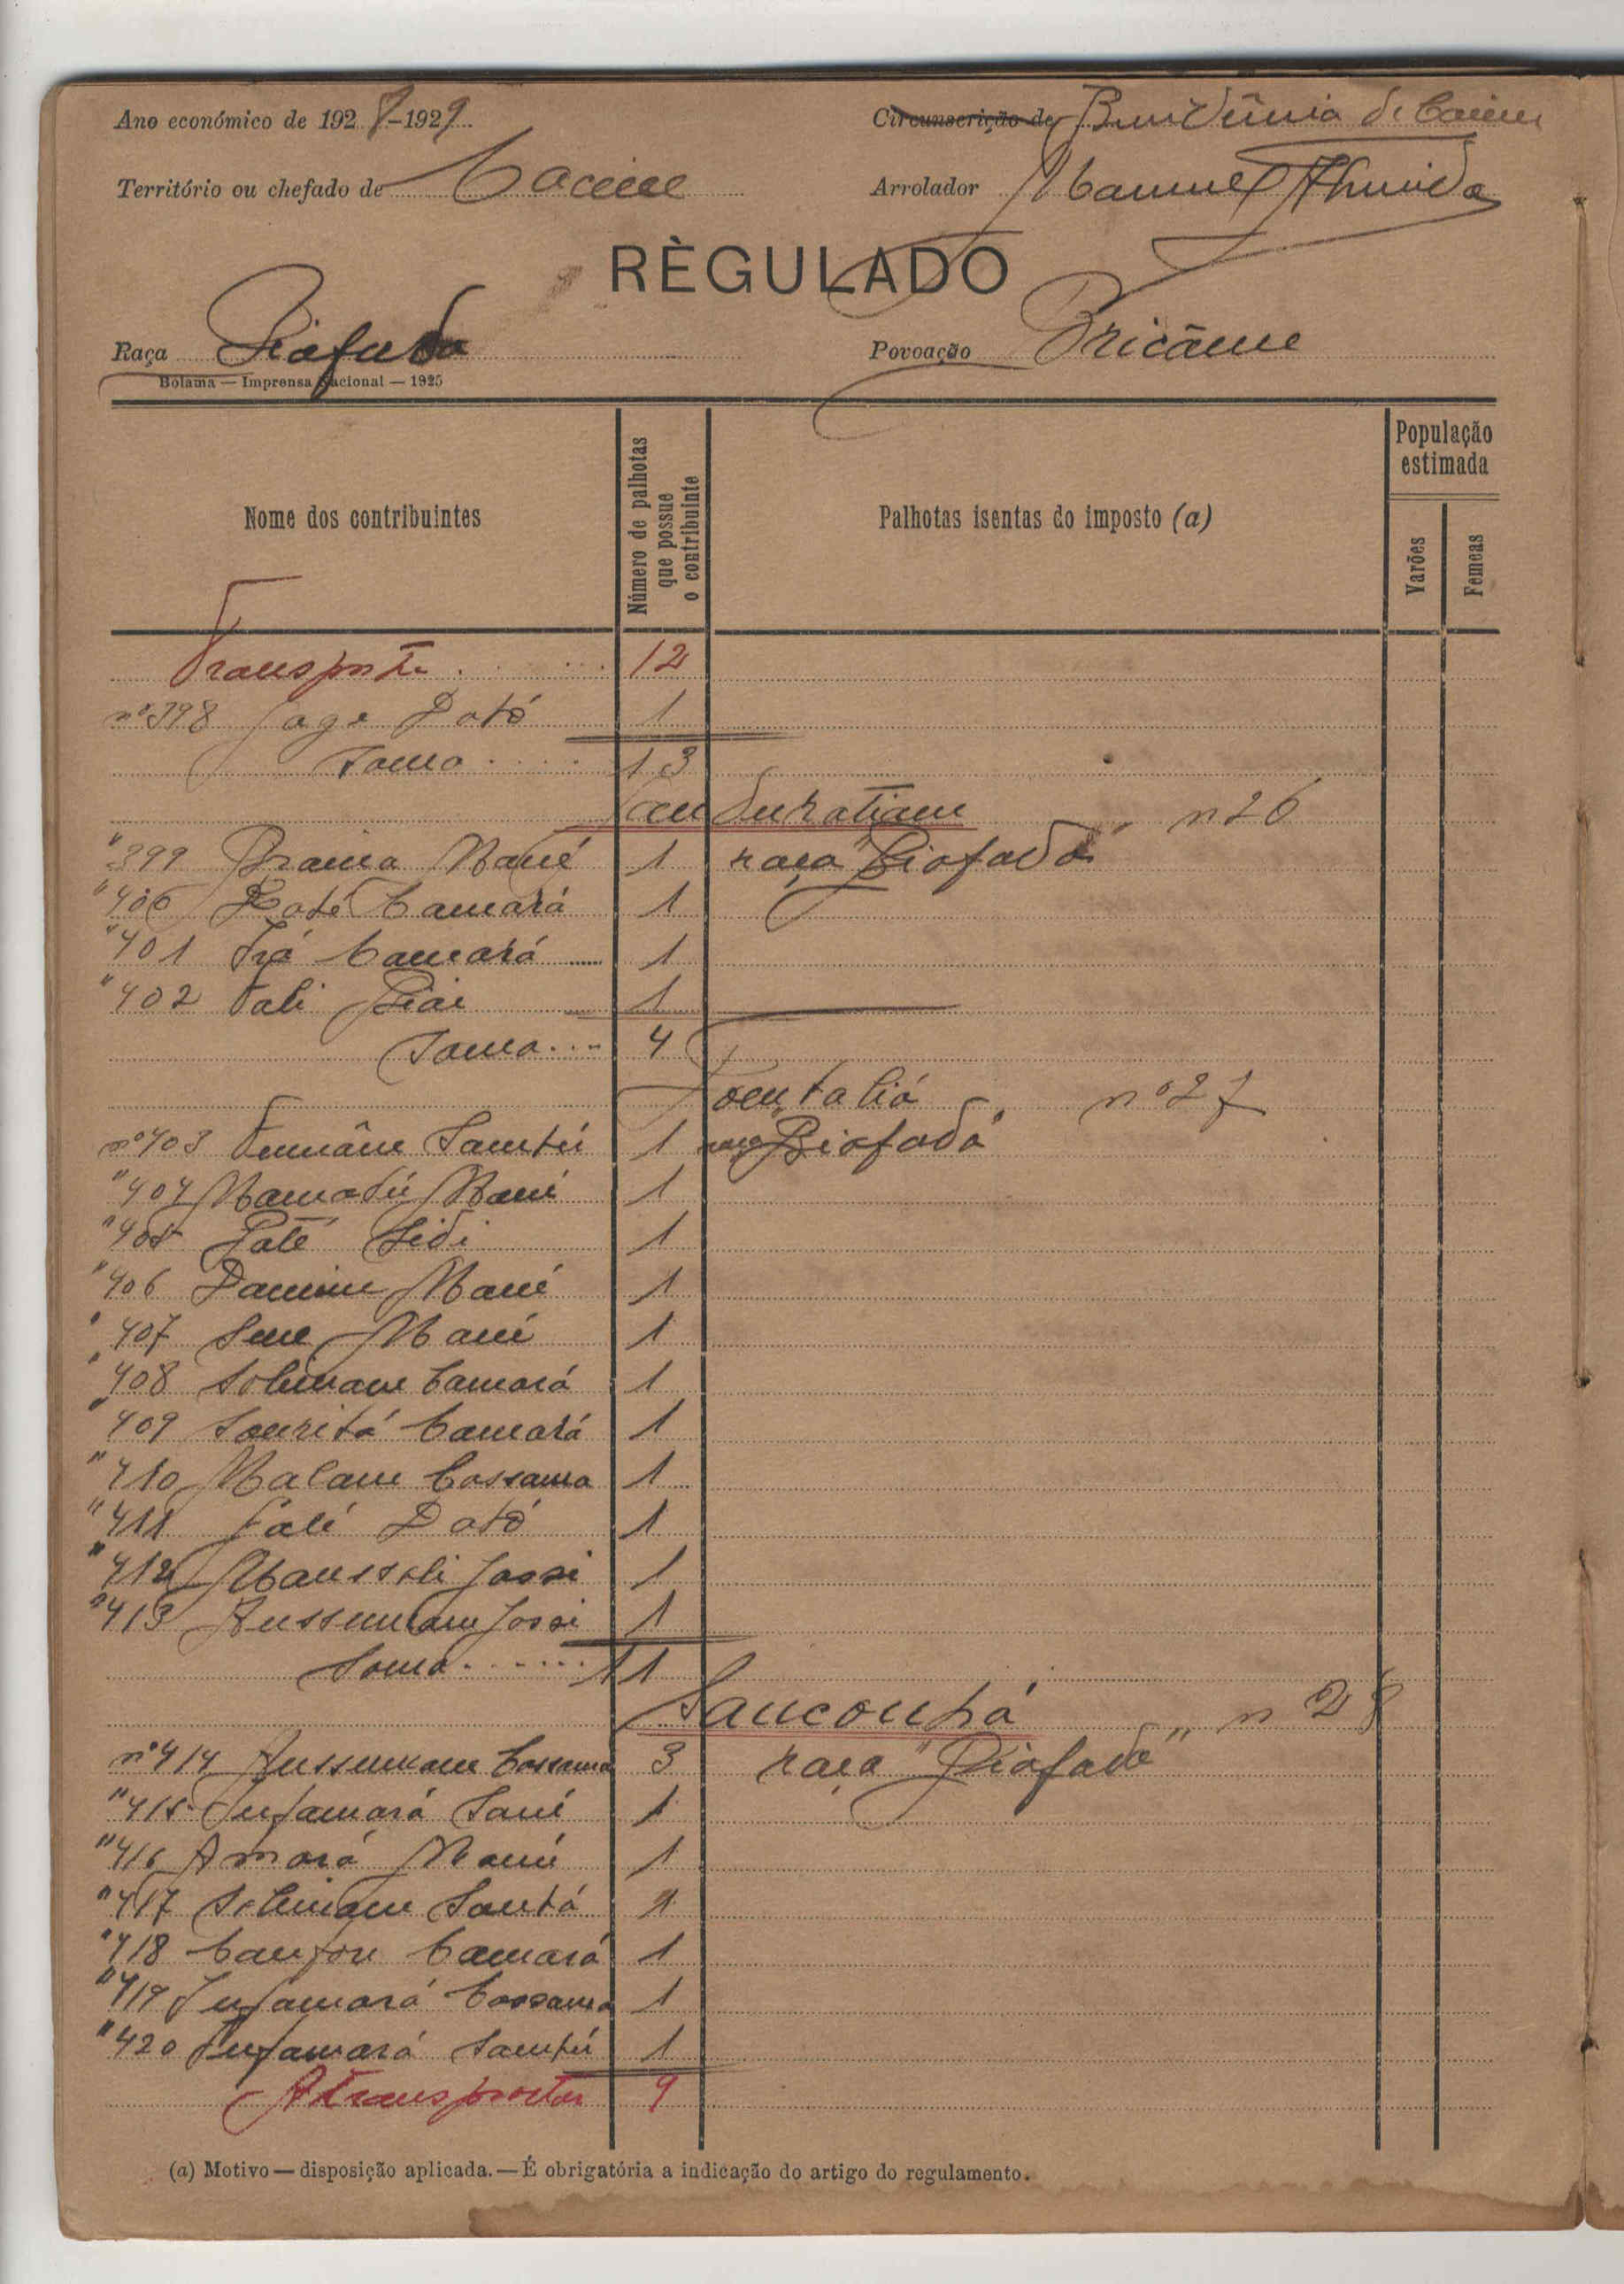 Ano económico de 1928-1929
Circunscrição de Residência de Cacine
Território ou chefado de Cacine
Arrolador Manuel Almeida
RÈGULADO
Raça Biafada
Povoação Bricâme
Bolama — Imprensa Nacional — 1925
Nome dos contribuintes
Número de palhotas que possue o contribuinte
Palhotas isentas do imposto (a)
População estimada
Varões
Femeas
Transporte 12
nº 398 Jage Dató 1
Soma 13
nº 26
" 399 Braima Mané 1 raça "Biafada"
" 400 Camará 1
" 401 Camará 1
" 402 Tali Biai 1
Soma 4
nº 27
nº 403 1 raça "Biafada"
" 404 Mamadú Mané 1
" 405 Paté Sidi 1
" 406 Mané 1
" 407 Mané 1
" 408 Solimane Camará 1
" 409 Camará 1
" 410 Malam Cassama 1
" 411 Dató 1
" 412 Jassi 1
" 413 Jassi 1
Soma 11
Sanconhá nº 28
nº 414 Aussumane Cassama 3 raça "Biafada"
" 415 Infamará Sané 1
" 416 Amará Mané 1
" 417 Solimane 1
" 418 Camará 1
" 419 Infamará Cassama 1
" 420 Infamará 1
A transportar 9
(a) Motivo — disposição aplicada. — É obrigatória a indicação do artigo do regulamento.